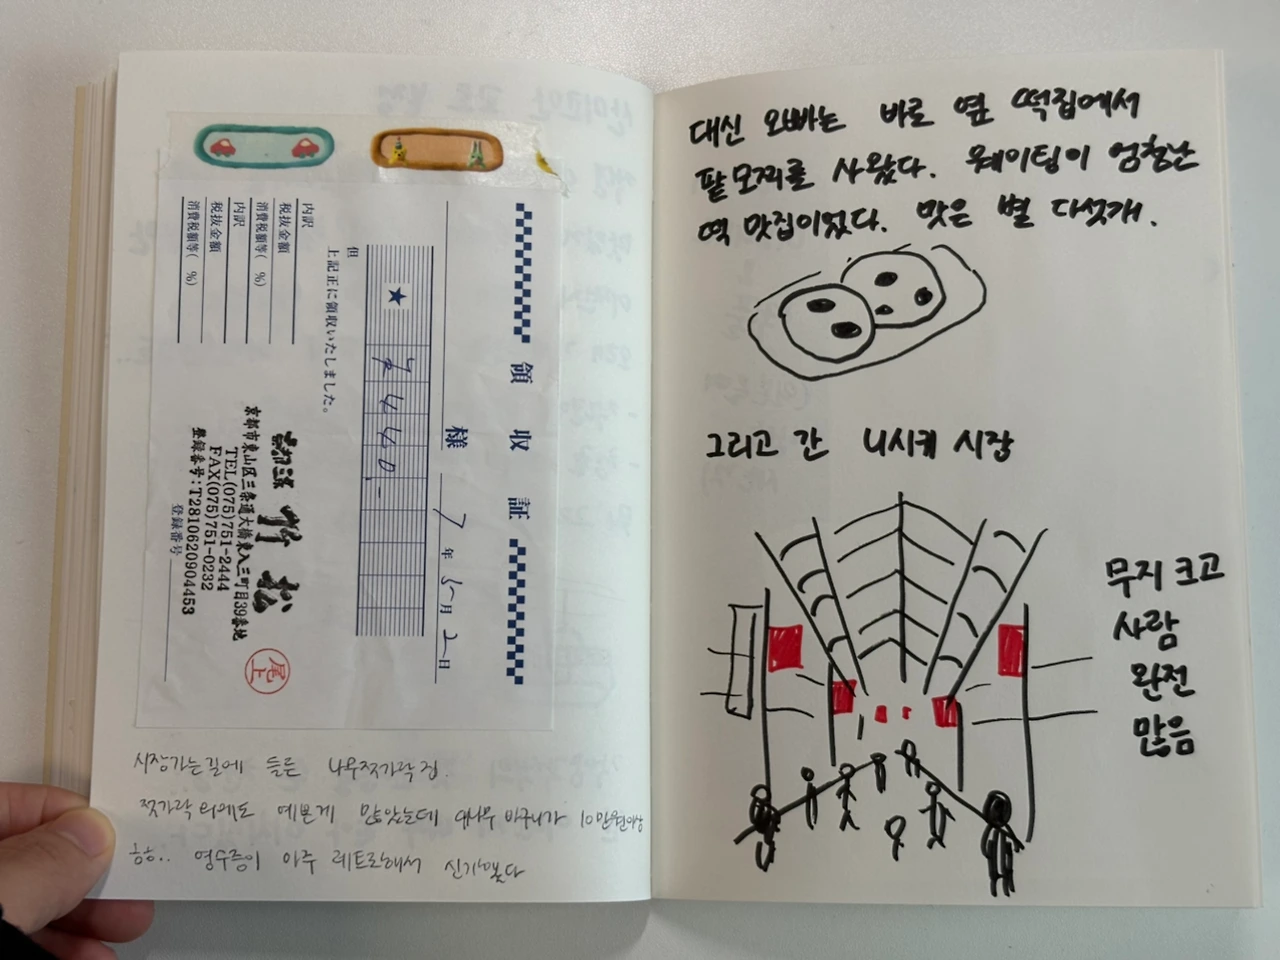 領収証
様
7年5月2日
★ 7440.-
但
上記正に領収いたしました。
内訳
税抜金額
消費税額等( %)
内訳
税抜金額
消費税額等( %)
竹松
京都市東山区三条通大橋東入三町目39番地
TEL(075)751-2444
FAX(075)751-0232
登録番号:T2810620904453
登録番号
尾上
시장가는길에 들른 나무젓가락 집.
젓가락 외에도 예쁜게 많았는데 대나무 바구니가 10만원이상
흠.. 영수증이 아주 레트로해서 신기했다
대신 오빠는 바로 옆 떡집에서
팥모찌를 사왔다. 웨이팅이 엄청난
떡 맛집이었다. 맛은 별 다섯개.
그리고 간 니시키 시장
무지 크고
사람
완전
많음